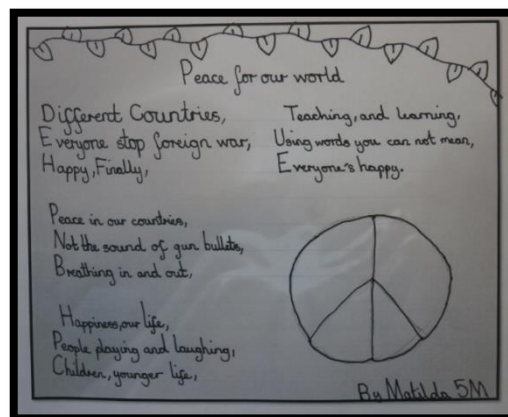 Peace for our world
Different Countries,
Everyone stop foreign war,
Happy, Finally,
Peace in our countries,
Not the sound of gun bullets,
Breathing in and out,
Happiness, our life,
People playing and laughing,
Children, younger life,
Teaching, and learning,
Using words you can not mean,
Everyone's happy.
By Matilda 5M